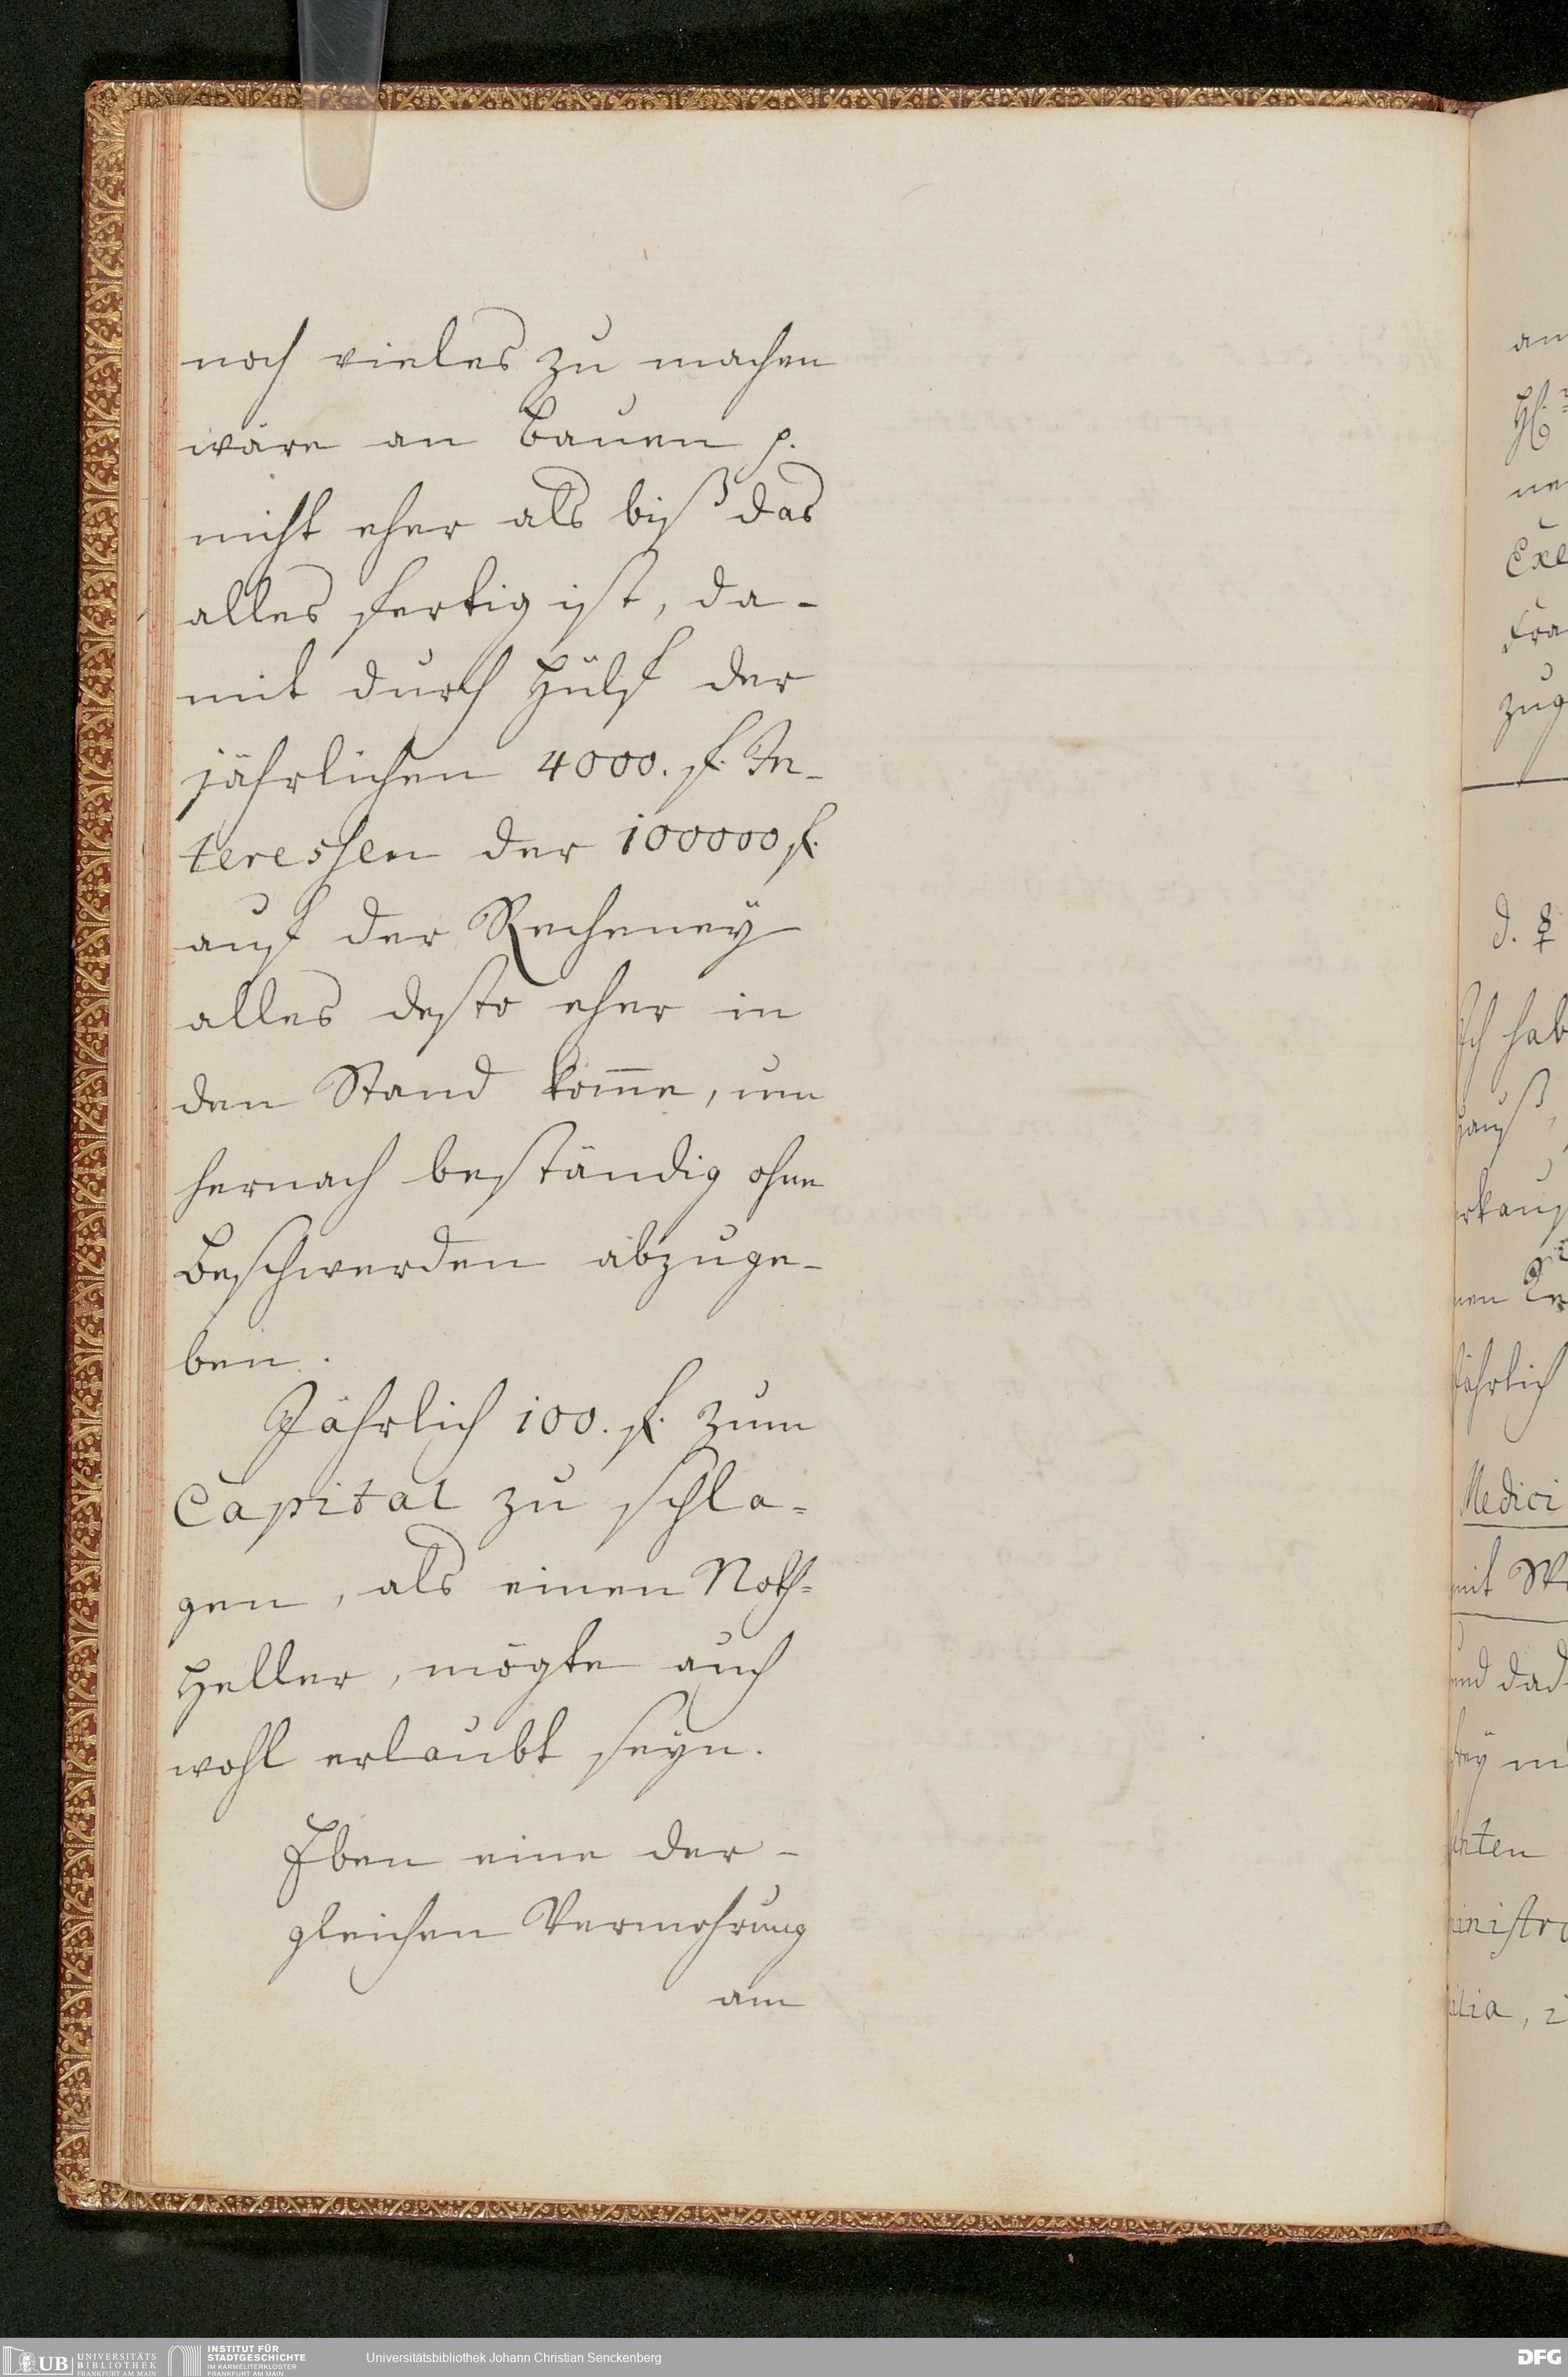 noch vieles zu machen
wäre an Bauen p.
nicht eher als biß das
alles fertig ist, da-
mit durch Hülf der
jährlichen 4000. f. In-
teressen der 100000 f.
auf der Recheneÿ
alles desto eher in
den Stand kom̄e, um
hernach beständig ohne
Beschwerden abzuge-
ben.
Jährlich 100. f. zum
Capital zu schla-
gen, als einen Noth-
Heller, mögte auch
wohl erlaubt seÿn.
Eben eine der-
gleichen Vermehrung
am
an
ne
Exe
Fra
zug
d. ♀
Ich hab
hauß,
rkauf
nen
jährlich
Medici
mit
und dad
freÿ
hten
inistra
ilia, i
UB UNIVERSITÄTS
BIBLIOTHEK
FRANKFURT AM MAIN
INSTITUT FÜR
STADTGESCHICHTE
IM KARMELITERKLOSTER
FRANKFURT AM MAIN
Universitätsbibliothek Johann Christian Senckenberg
DFG